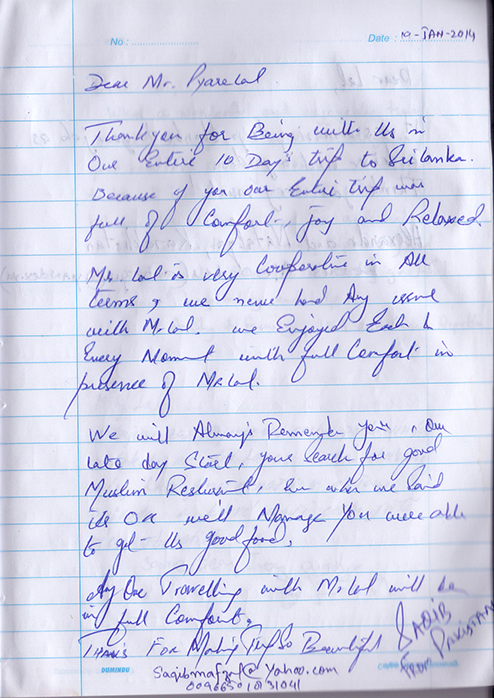 No: ....................
Date: 10-JAN-2014
Dear Mr. Pyarelal
Thankyou for Being with Us in
Our Entire 10 Day's trip to Srilanka.
Because of you our Entire trip was
full of Comfort, Joy and Relaxed.
Mr Lal is very Cooperative in All
terms, we never had Any issue
with Mr Lal. we Enjoyed Each &
Every Moment with full Comfort in
presence of Mr Lal.
We will Always Remember you, Our
late day Start, your Search for good
Muslim Resturant, when we Said
its OK we'll Manage You were able
to get Us good food,
Any One Travelling with Mr Lal will be
in full Comfort,
Thanks For Making Trip So Beautifull
SAQIB
From PAKISTAN
DOMINDO